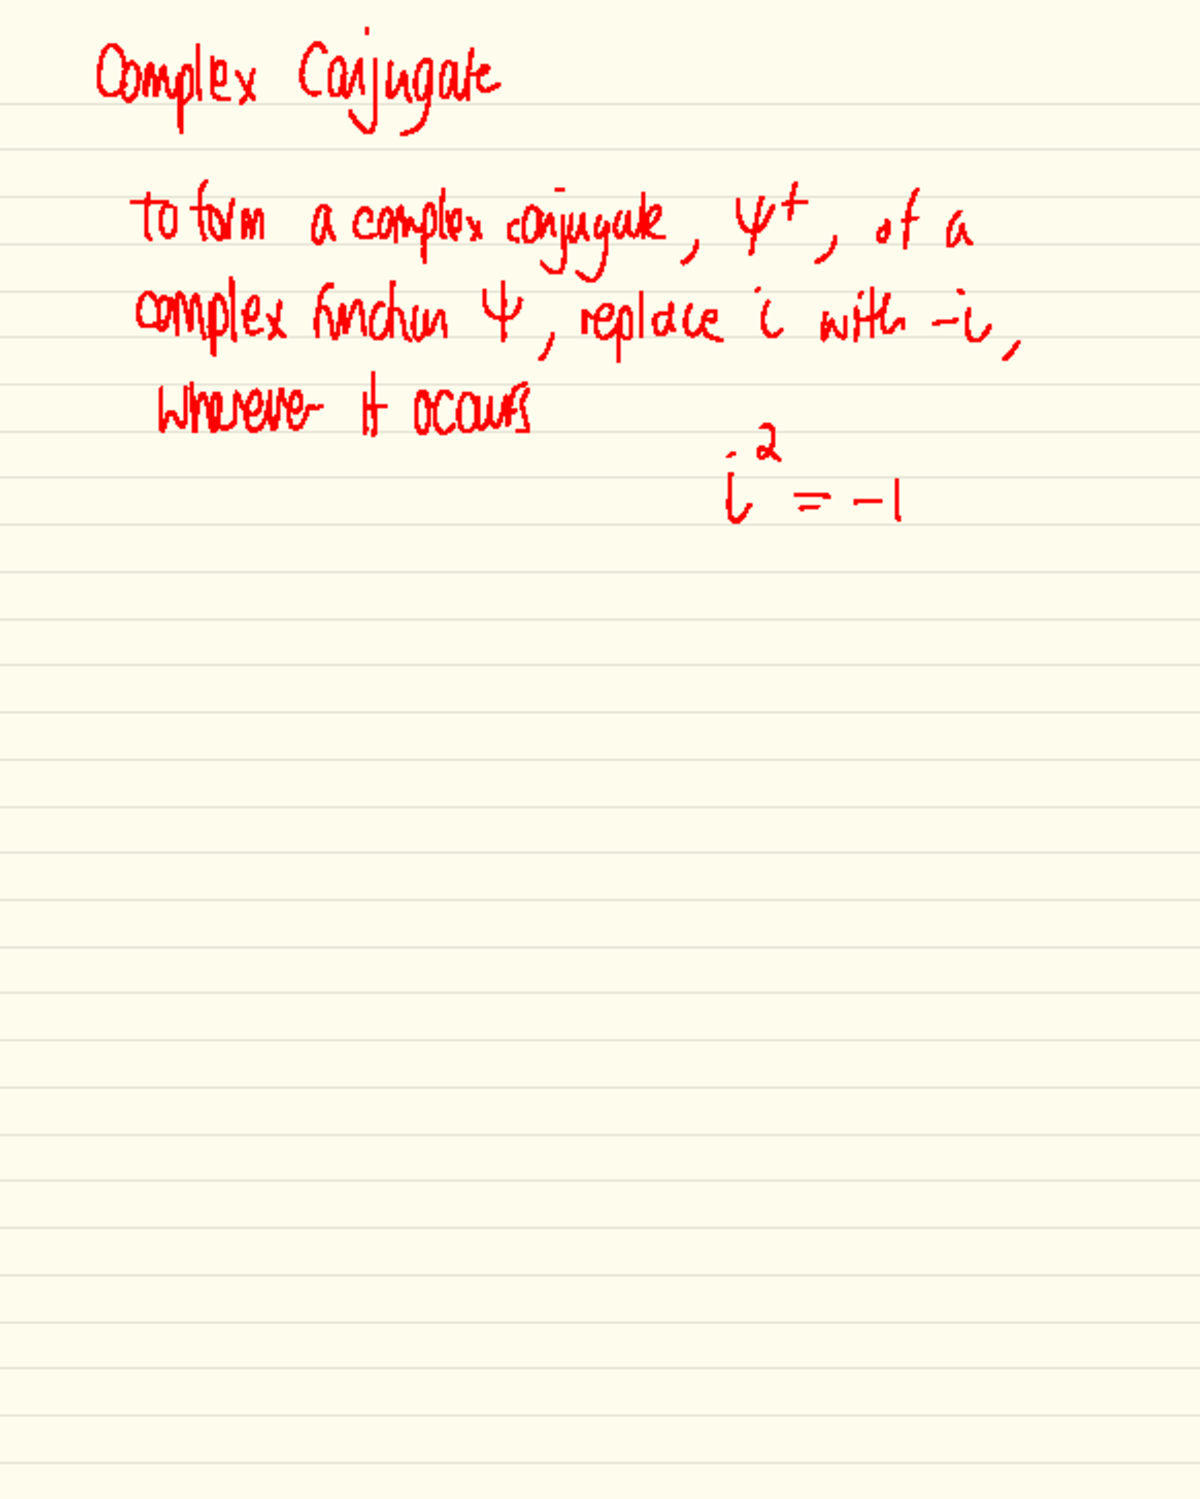 Complex Conjugate
to form a complex conjugate, ψ⁺, of a
complex function ψ, replace i with -i,
wherever it occurs
i² = -1